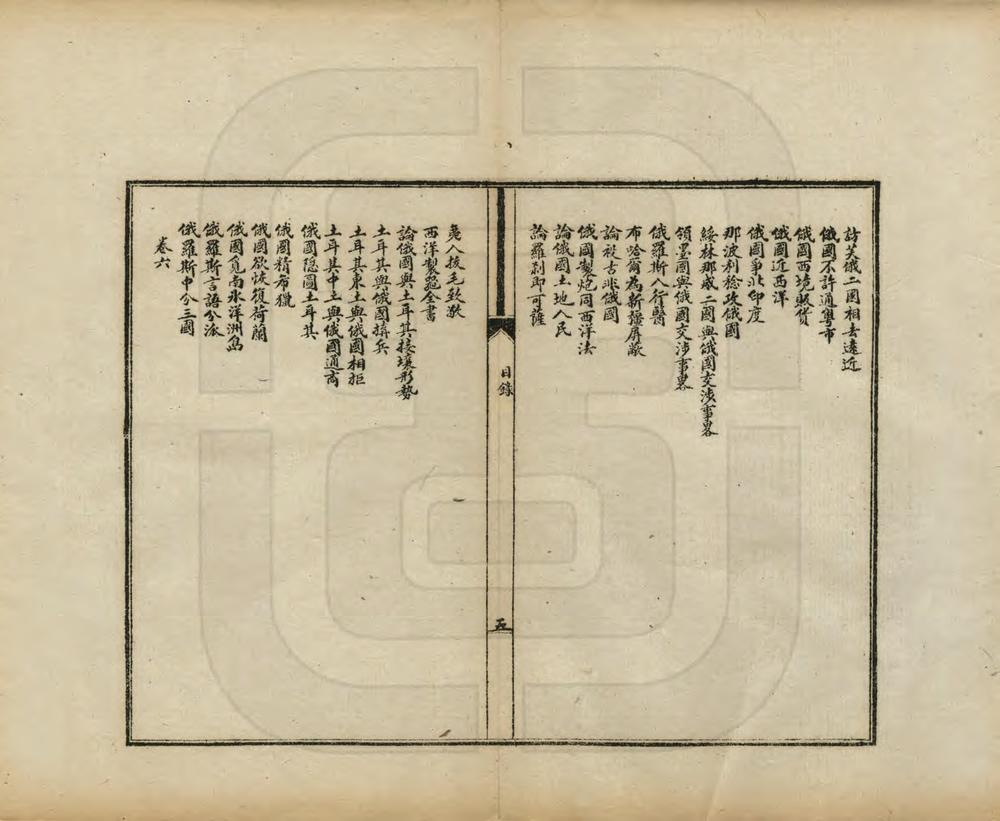 訪英俄二國相去遠近
俄國不許通粵市
俄國西境販货
俄國近西洋
俄國爭北印度
那波利稔政俄國
綏林那威二國與俄國交涉事畧
領墨國與俄國交涉事畧
俄羅斯人行醫
布哈爾為新疆屏蔽
論殺古非俄國
俄國製炮同西洋法
論俄國土地人民
論羅剎即可薩
目錄
五
夷人拔毛欵欵
西洋製
全書
論俄國與土耳其接壤形勢
土耳其與俄國搆兵
土耳其東土與俄國相拒
土耳其中土與俄國通商
俄國隐圖土耳其
俄國精希獵
俄國欲恢復荷蘭
俄國覓南氷洋洲島
俄羅斯言語分派
俄羅斯中分三國
卷六